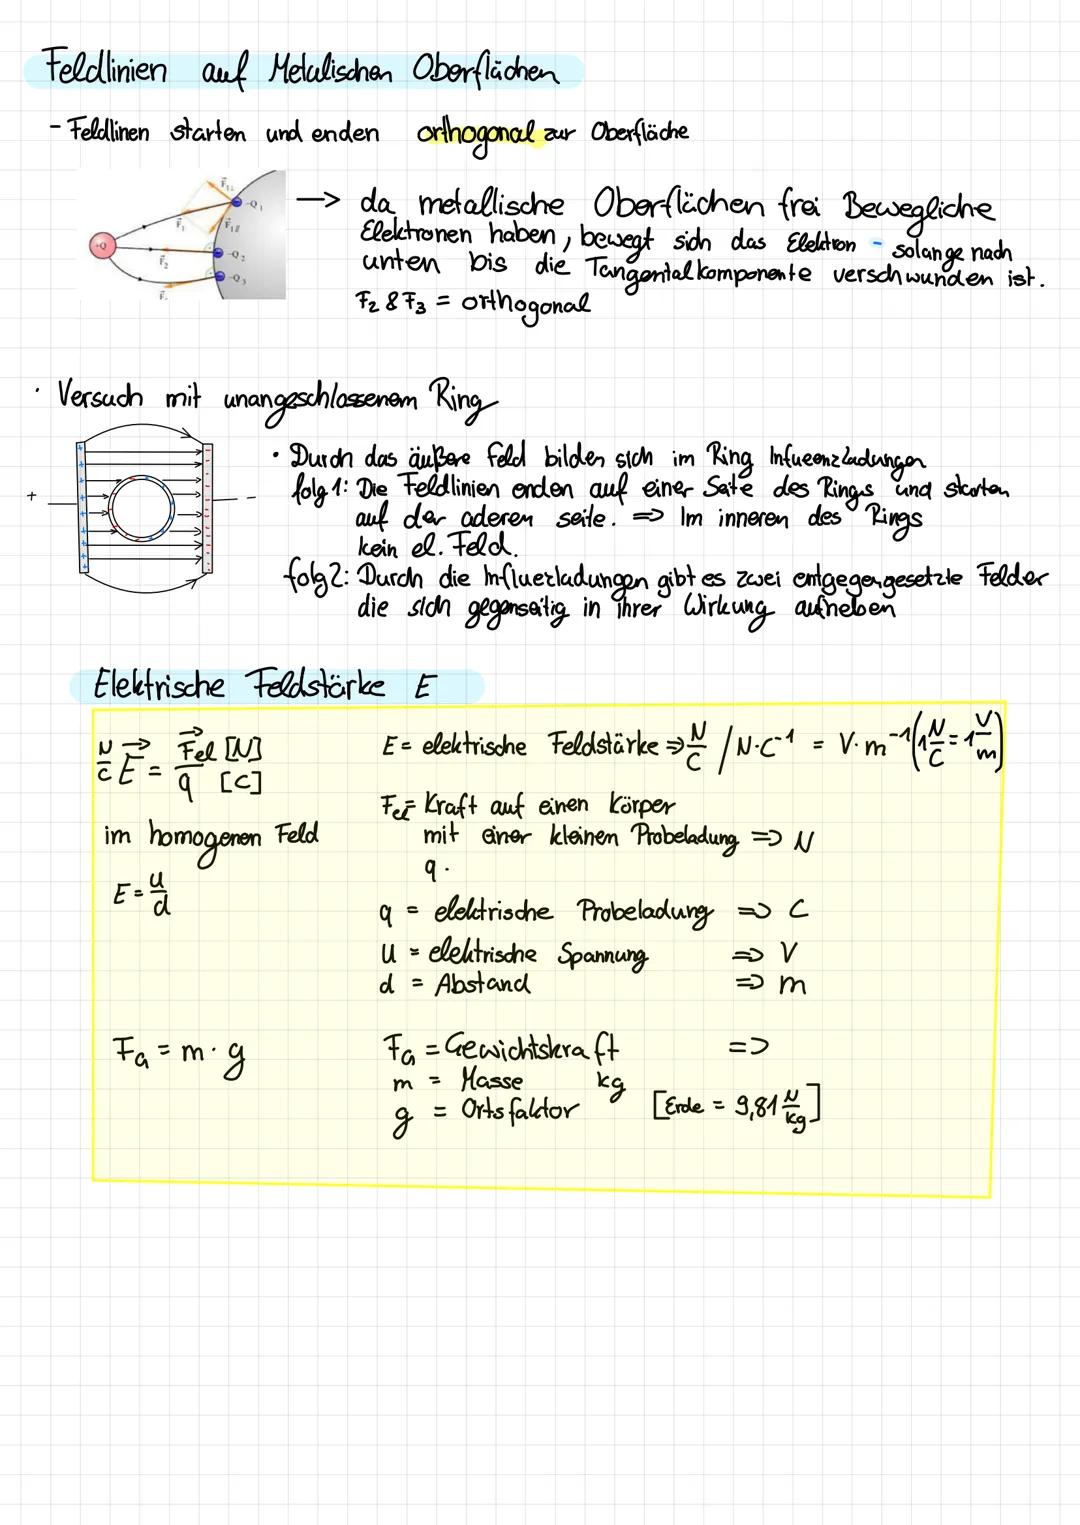 Feldlinien auf Metalischen Oberflächen
- Feldlinen starten und enden orthogonal zur Oberfläche
+Q
F₁⊥
-Q₁
F₁
F₁∥
-Q₂
F₂
-Q₃
→ da metallische Oberflächen frei Bewegliche
Elektronen haben, bewegt sich das Elektron - solange nach
unten bis die Tangentalkomponente verschwunden ist.
F₂ & F₃ = orthogonal
· Versuch mit unangeschlossenem Ring
+ -
· Durch das äußere Feld bilden sich im Ring Influenzladungen
folg 1: Die Feldlinien enden auf einer Seite des Rings und starten
auf der aderen seite. => Im inneren des Rings
kein el. Feld.
folg 2: Durch die Influezladungen gibt es zwei entgegengesetzte Felder
die sich gegenseitig in ihrer Wirkung aufheben
Elektrische Feldstärke E
N/C E = Fel [N] / q [C]
E = elektrische Feldstärke => N/C / N·C⁻¹ = V·m⁻¹ (1 N/C = 1 V/m)
im homogenen Feld
E = u/d
Fel = Kraft auf einen Körper
mit einer kleinen Probeladung => N
q.
q = elektrische Probeladung => C
U = elektrische Spannung => V
d = Abstand => m
FG = m · g
FG = Gewichtskraft =>
m = Masse kg
g = Ortsfaktor [Erde = 9,81 N/kg]